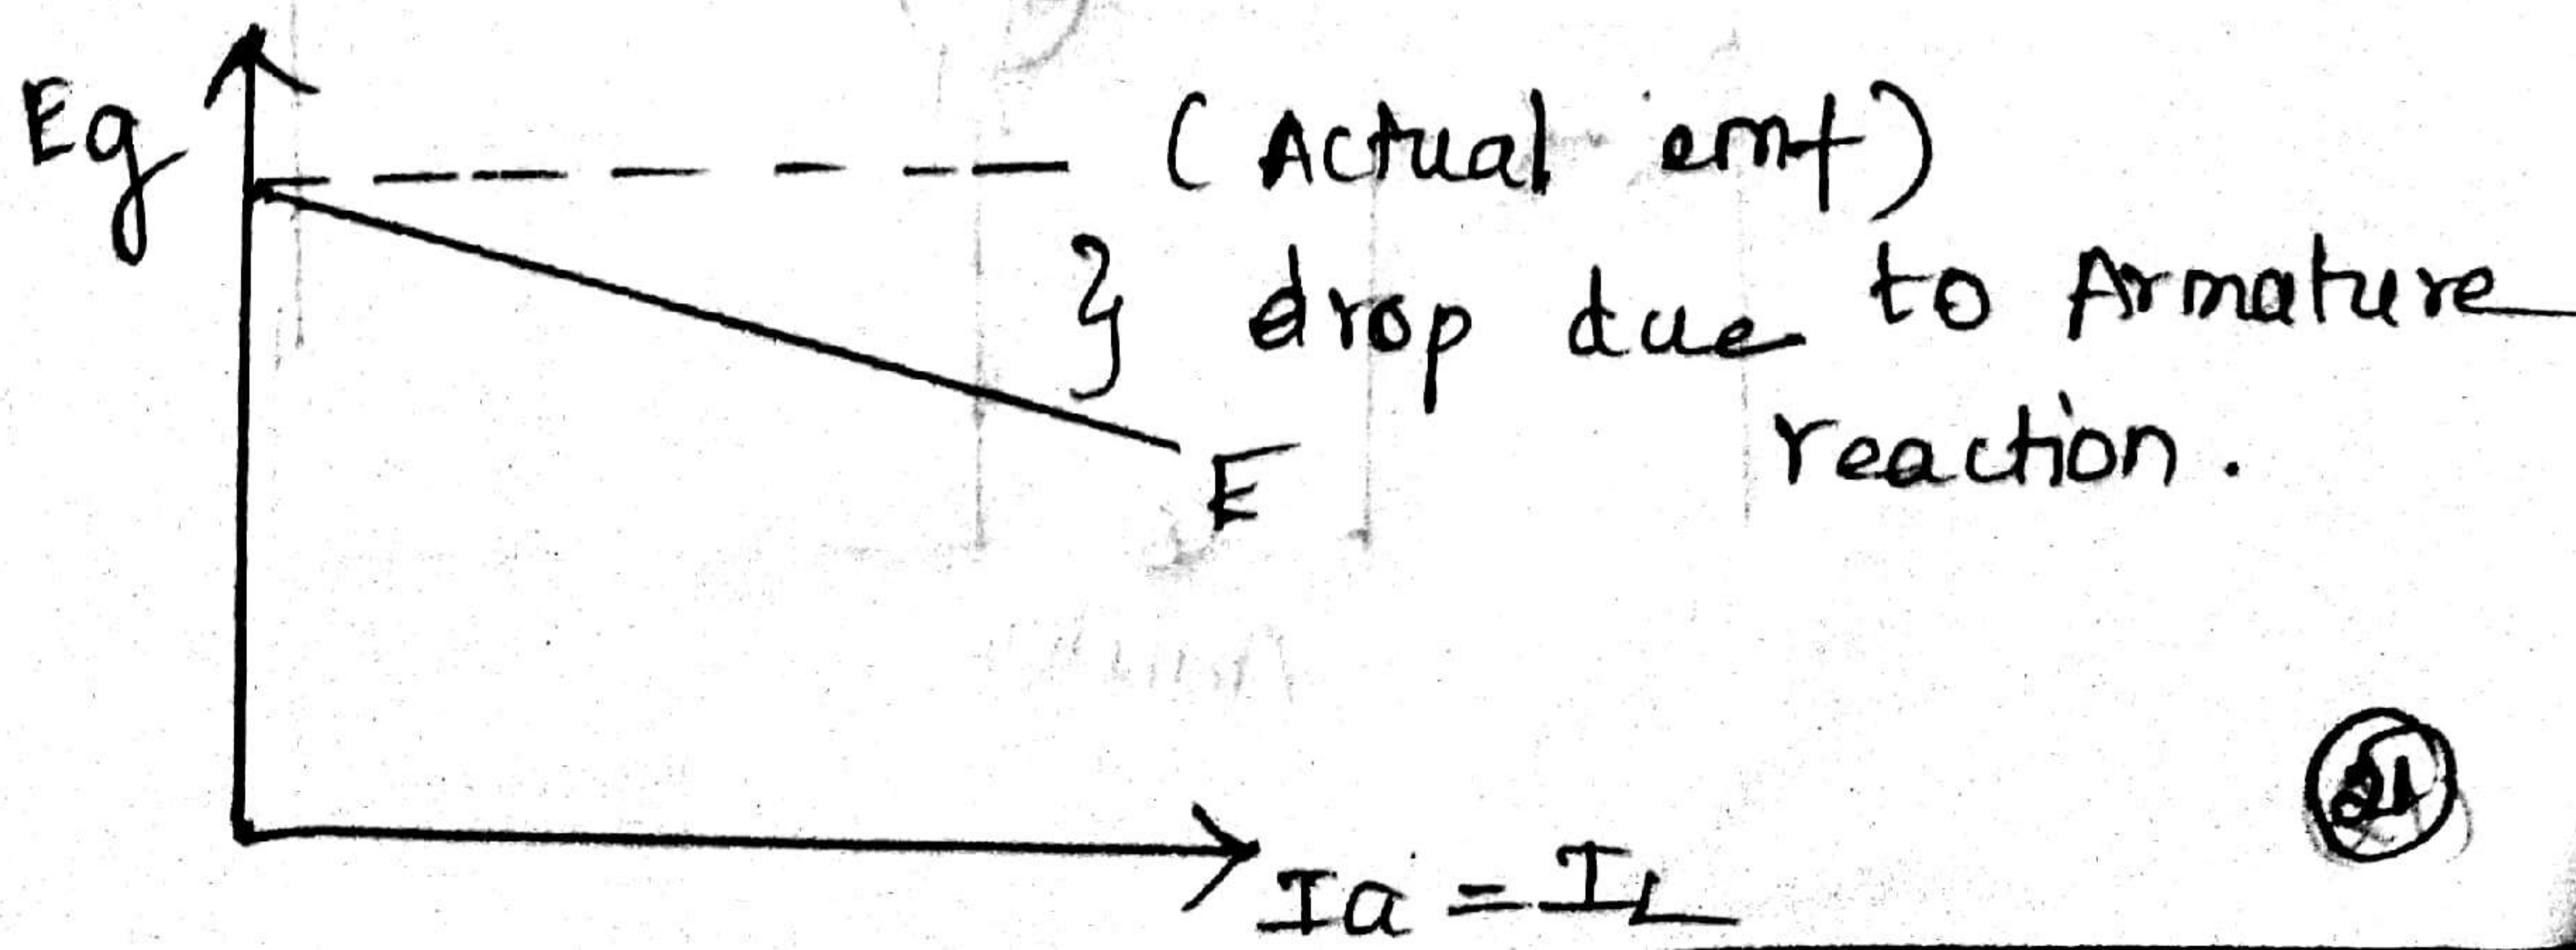 Eg
(Actual emf)
} drop due to Armature
reaction.
E
Ia = IL